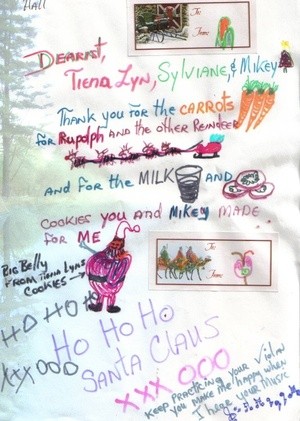 HALL
To:
From:
DEAREST,
Tiena Lyn, Sylviane, & Mikey
Thank you for the CARROTS
for Rudolph and the other Reindeer
and for the MILK and
COOKIES you and Mikey MADE
for ME
To:
From:
Big Belly
from Tiena Lyns
Cookies →
HO HO HO
XXX OOO
Ho Ho Ho
Santa Claus
XXX OOO
Keep practicing your Violin
you make me happy when
I hear your Music